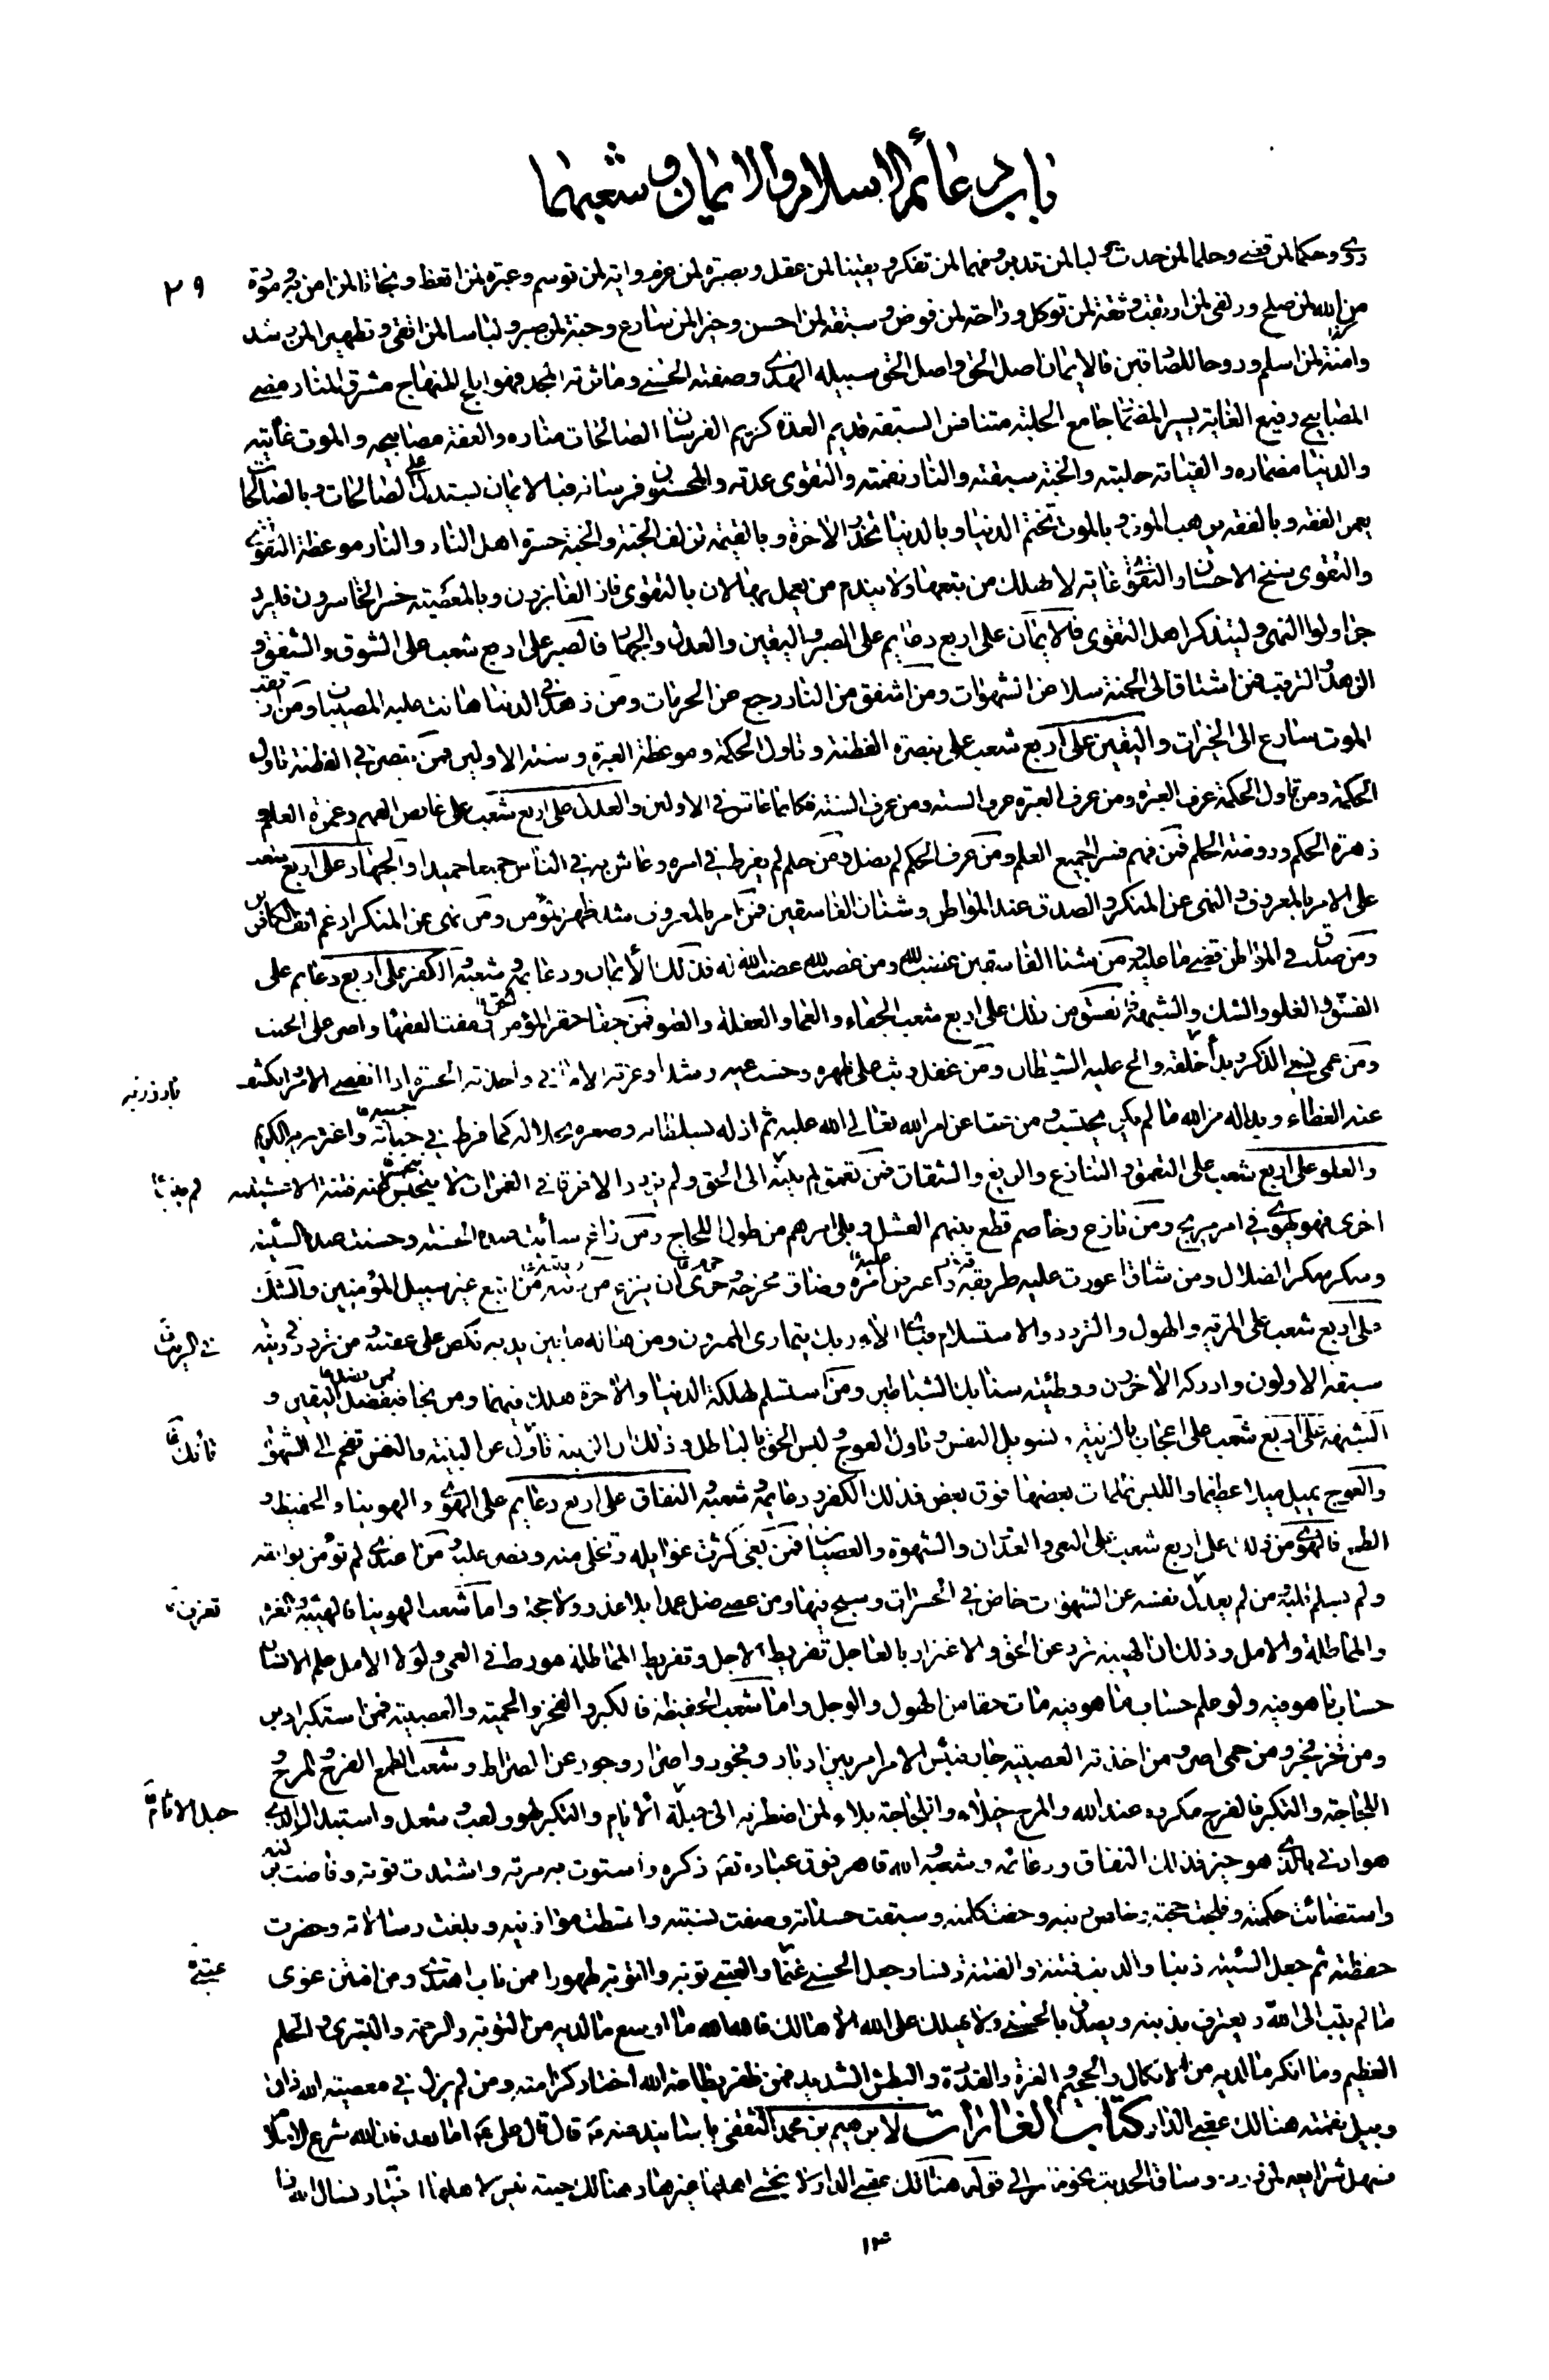 باب دعائم الاسلام والايمان وشعبهما
٢٩
روى وحكما لمن قضى وحلما لمن حدث ولبا لمن تدبر وفهما لمن تفكر ويقينا لمن عقل وبصيرة لمن عزم واية لمن توسم وعبرة لمن اتعظ ونجاة لمن امن به ومودة
من الله لمن صلح وزلفى لمن ارتقب وثقة لمن توكل وراحة لمن فوض وسبقة لمن احسن وخيرا لمن سارع وجنة لمن صبر ولباسا لمن اتقى وتطهيرا لمن رشد
وامنة لمن اسلم وروحا للصادقين فالايمان اصل الحق واصل الحق سبيله الهدى وصفته الحسنى وماثرته المجد فهو ابلج المنهاج مشرق المنار مضىء
المصابيح رفيع الغاية يسير المضمار جامع الحلبة متنافس السبقة قديم العدة كريم الفرسان الصالحات مناره والعفة مصابيحه والموت غايته
والدنيا مضماره والقيامة حلبته والجنة سبقته والنار نقمته والتقوى عدته والمحسنون فرسانه فبالايمان يستدل على الصالحات وبالصالحات
يعمر الفقه وبالفقه يرهب الموت وبالموت تختم الدنيا وبالدنيا تحذر الآخرة وبالقيمة تزلف الجنة والجنة حسرة اهل النار والنار موعظة التقوى
والتقوى سنخ الاحسان والتقوى غاية لا يهلك من تبعها ولا يندم من يعمل بها لان بالتقوى فاز الفائزون وبالمعصية خسر الخاسرون فليزد
جر اولوا النهى وليتذكر اهل التقوى فالايمان على اربع دعايم على الصبر واليقين والعدل والجهاد فالصبر على اربع شعب على الشوق والشفق و
الزهد والترقب فمن اشتاق الى الجنة سلا عن الشهوات ومن اشفق من النار رجع عن الحرمات ومن زهد فى الدنيا هانت عليه المصيبات ومن ارتقب
الموت سارع الى الخيرات واليقين على اربع شعب على تبصرة الفطنة وتاول الحكمة وموعظة العبرة وسنة الاولين فمن تبصر فى الفطنة تاول
الحكمة ومن تاول الحكمة عرف العبرة ومن عرف العبرة عرف السنة ومن عرف السنة فكانما عاش فى الاولين والعدل على اربع شعب على غايص الفهم وغمرة العلم و
زهرة الحكم وروضة الحلم فمن فهم فسر جميع العلم ومن عرف الحكم لم يضل ومن حلم لم يفرط فى امره وعاش به فى الناس جميعا حميدا والجهاد على اربع شعب
على الامر بالمعروف والنهى عن المنكر والصدق عند المواطن وشنان الفاسقين فمن امر بالمعروف شد ظهر المؤمن ومن نهى عن المنكر ارغم انف الكافر
ومن صدق فى المواطن قضى ما عليه ومن شنا الفاسقين غضب لله ومن غضب لله غضب الله له فذلك الايمان ودعايمه وشعبه والكفر على اربع دعايم على
الفسق والغلو والشك والشبهة فالفسق من ذلك على اربع شعب الجفاء والعما والغفلة والعتو فمن جفا حقر المؤمن ومقت الفقهاء واصر على الحنث
ومن عمى نسى الذكر وبذا خلقه والح عليه الشيطان ومن غفل وثب على ظهره وحسب غيه رشدا وغرته الامانى واخذته الحسرة اذا انقضى الامر وانكشف
عنه الغطاء وبدا له من الله ما لم يكن يحتسب ومن عتا عن امر الله تعالى الله عليه ثم اذله بسلطانه وصغره بجلاله كما فرط فى حياته واغتر بربه الكريم
والغلو على اربع شعب على التعمق والتنازع والزيغ والشقاق فمن تعمق لم ينته الى الحق ولم يزدد الا غرقا فى الغمرات لا تنحبس عنه فتنة الا غشيته
اخرى فهو يهوى فى امر مريج ومن نازع وخاصم قطع بينهم الفشل وبلى امرهم من طول اللجاج ومن زاغ ساءت عنده الحسنة وحسنت عنده السيئة
وسكر سكر الضلال ومن شاق اعورت عليه طريقه واعترض امره وضاق مخرجه وحرى ان ينزع من دينه من اتبع غير سبيل المؤمنين والشك
على اربع شعب على المرية والهول والتردد والاستسلام فباى الاء ربك يتمارى الممترون ومن هاله ما بين يديه نكص على عقبيه ومن تردد فى دينه
سبقه الاولون وادركه الآخرون ووطئته سنابك الشياطين ومن استسلم لهلكة الدنيا والآخرة هلك فيهما ومن نجا فبفضل اليقين و
الشبهة على اربع شعب على اعجاب بالزينة وتسويل النفس وتاول العوج ولبس الحق بالباطل وذلك ان الزينة تأول عن البينة والنفس تقحم الى الشهوة
والعوج يميل ميلا عظيما واللبس ظلمات بعضها فوق بعض فذلك الكفر ودعايمه وشعبه والنفاق على اربع دعايم على الهوى والهوينا والحفيظة و
الطمع فالهوى من ذلك على اربع شعب على البغى والعدوان والشهوة والعصيان فمن بغى كثرت غوايله وتخلى منه ونصر عليه ومن اعتدى لم تؤمن بوايقه
ولم يسلم قلبه ومن لم يعدل نفسه عن الشهوات خاض فى الحسرات وسبح فيها ومن عصى ضل عمدا بلا عذر ولا حجة واما شعب الهوينا فالهيبة والغرة
والمماطلة والامل وذلك ان الهيبة ترد عن الحق والاغترار بالعاجل تفريط الاجل وتفريط المماطلة مورط فى العمى ولولا الامل علم الانسان
حساب ما هو فيه ولو علم حساب ما هو فيه مات خفاتا من الهول والوجل واما شعب الحفيظة فالكبر والفخر والحمية والعصبية فمن استكبر ادبر
ومن فخر فجر ومن حمى اصر ومن اخذته العصبية جار فبئس الامر امر بين ادبار وفجور واصرار وجور عن الصراط وشعب الطمع الفرح والمرح و
اللجاجة والتكبر فالفرح مكروه عند الله والمرح خيلاء واللجاجة بلاء لمن اضطرته الى حبلة الانام والتكبر لهو ولعب وشغل واستبدال الذى
هو ادنى بالذى هو خير فذلك النفاق ودعائمه وشعبه والله قاهر فوق عباده تعالى ذكره واستوت به مرته واشتدت قوته وفاضت بركته
واستضائت حكمته وفلجت حجته وخلص دينه وحقت كلمته وسبقت حسناته وصفت نسبته واقسطت موازينه وبلغت رسالاته وحضرت
حفظته ثم جعل السيئة ذنبا والذنب فتنة والفتنة دنسا وجعل الحسنى غنما والعتبى توبة والتوبة طهورا فمن تاب اهتدى ومن افتتن غوى
ما لم يتب الى الله ويعترف بذنبه ويصدق بالحسنى ولا يهلك على الله الا هالك فالله الله ما اوسع ما لديه من التوبة والرحمة والبشرى والحلم
العظيم وما انكر ما لديه من الانكال والجحيم والعزة والقدرة والبطش الشديد فمن ظفر بطاعة الله اختار كرامته ومن لم يزل فى معصية الله ذاق
وبيل نقمته هنالك عقبى الدار كتاب الغارات لابرهيم بن محمد الثقفى باسناده عنه ع قال قال على ع اما بعد فان الله شرع الاسلام
فسهل شرايعه لمن ورده وساق الحديث نحو ما مر الى قوله هنالك عقبى الدار لا يخشى اهلها غيرها وهنالك خيبة ليس لاهلها اختيار نسال الله ذا
تعزيز
عقبى
١٣